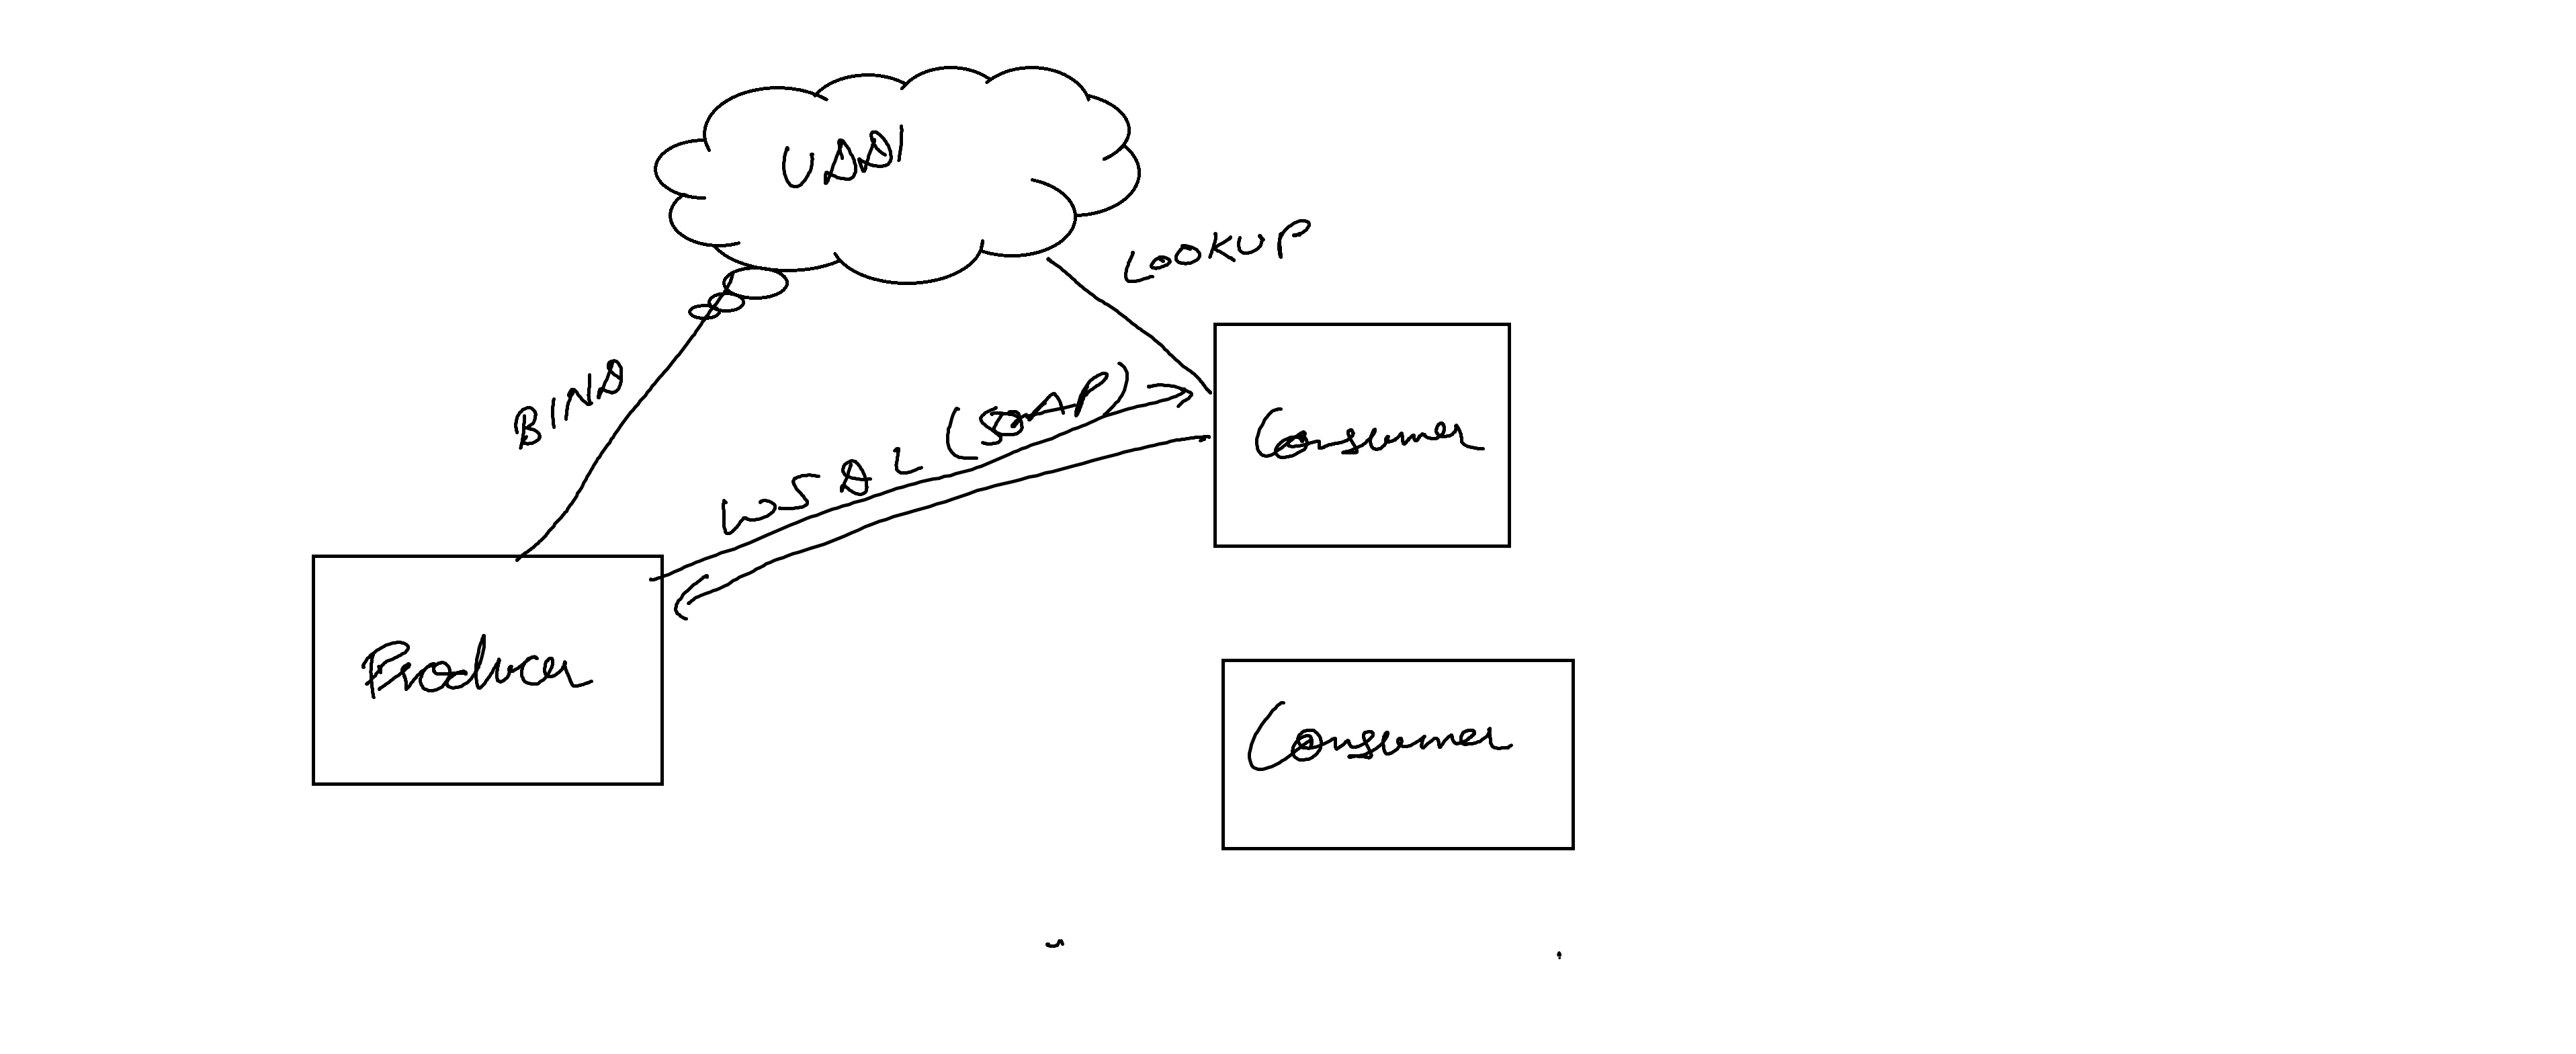 UDDI
LOOKUP
BIND
WSDL (SOAP)
Consumer
Producer
Consumer